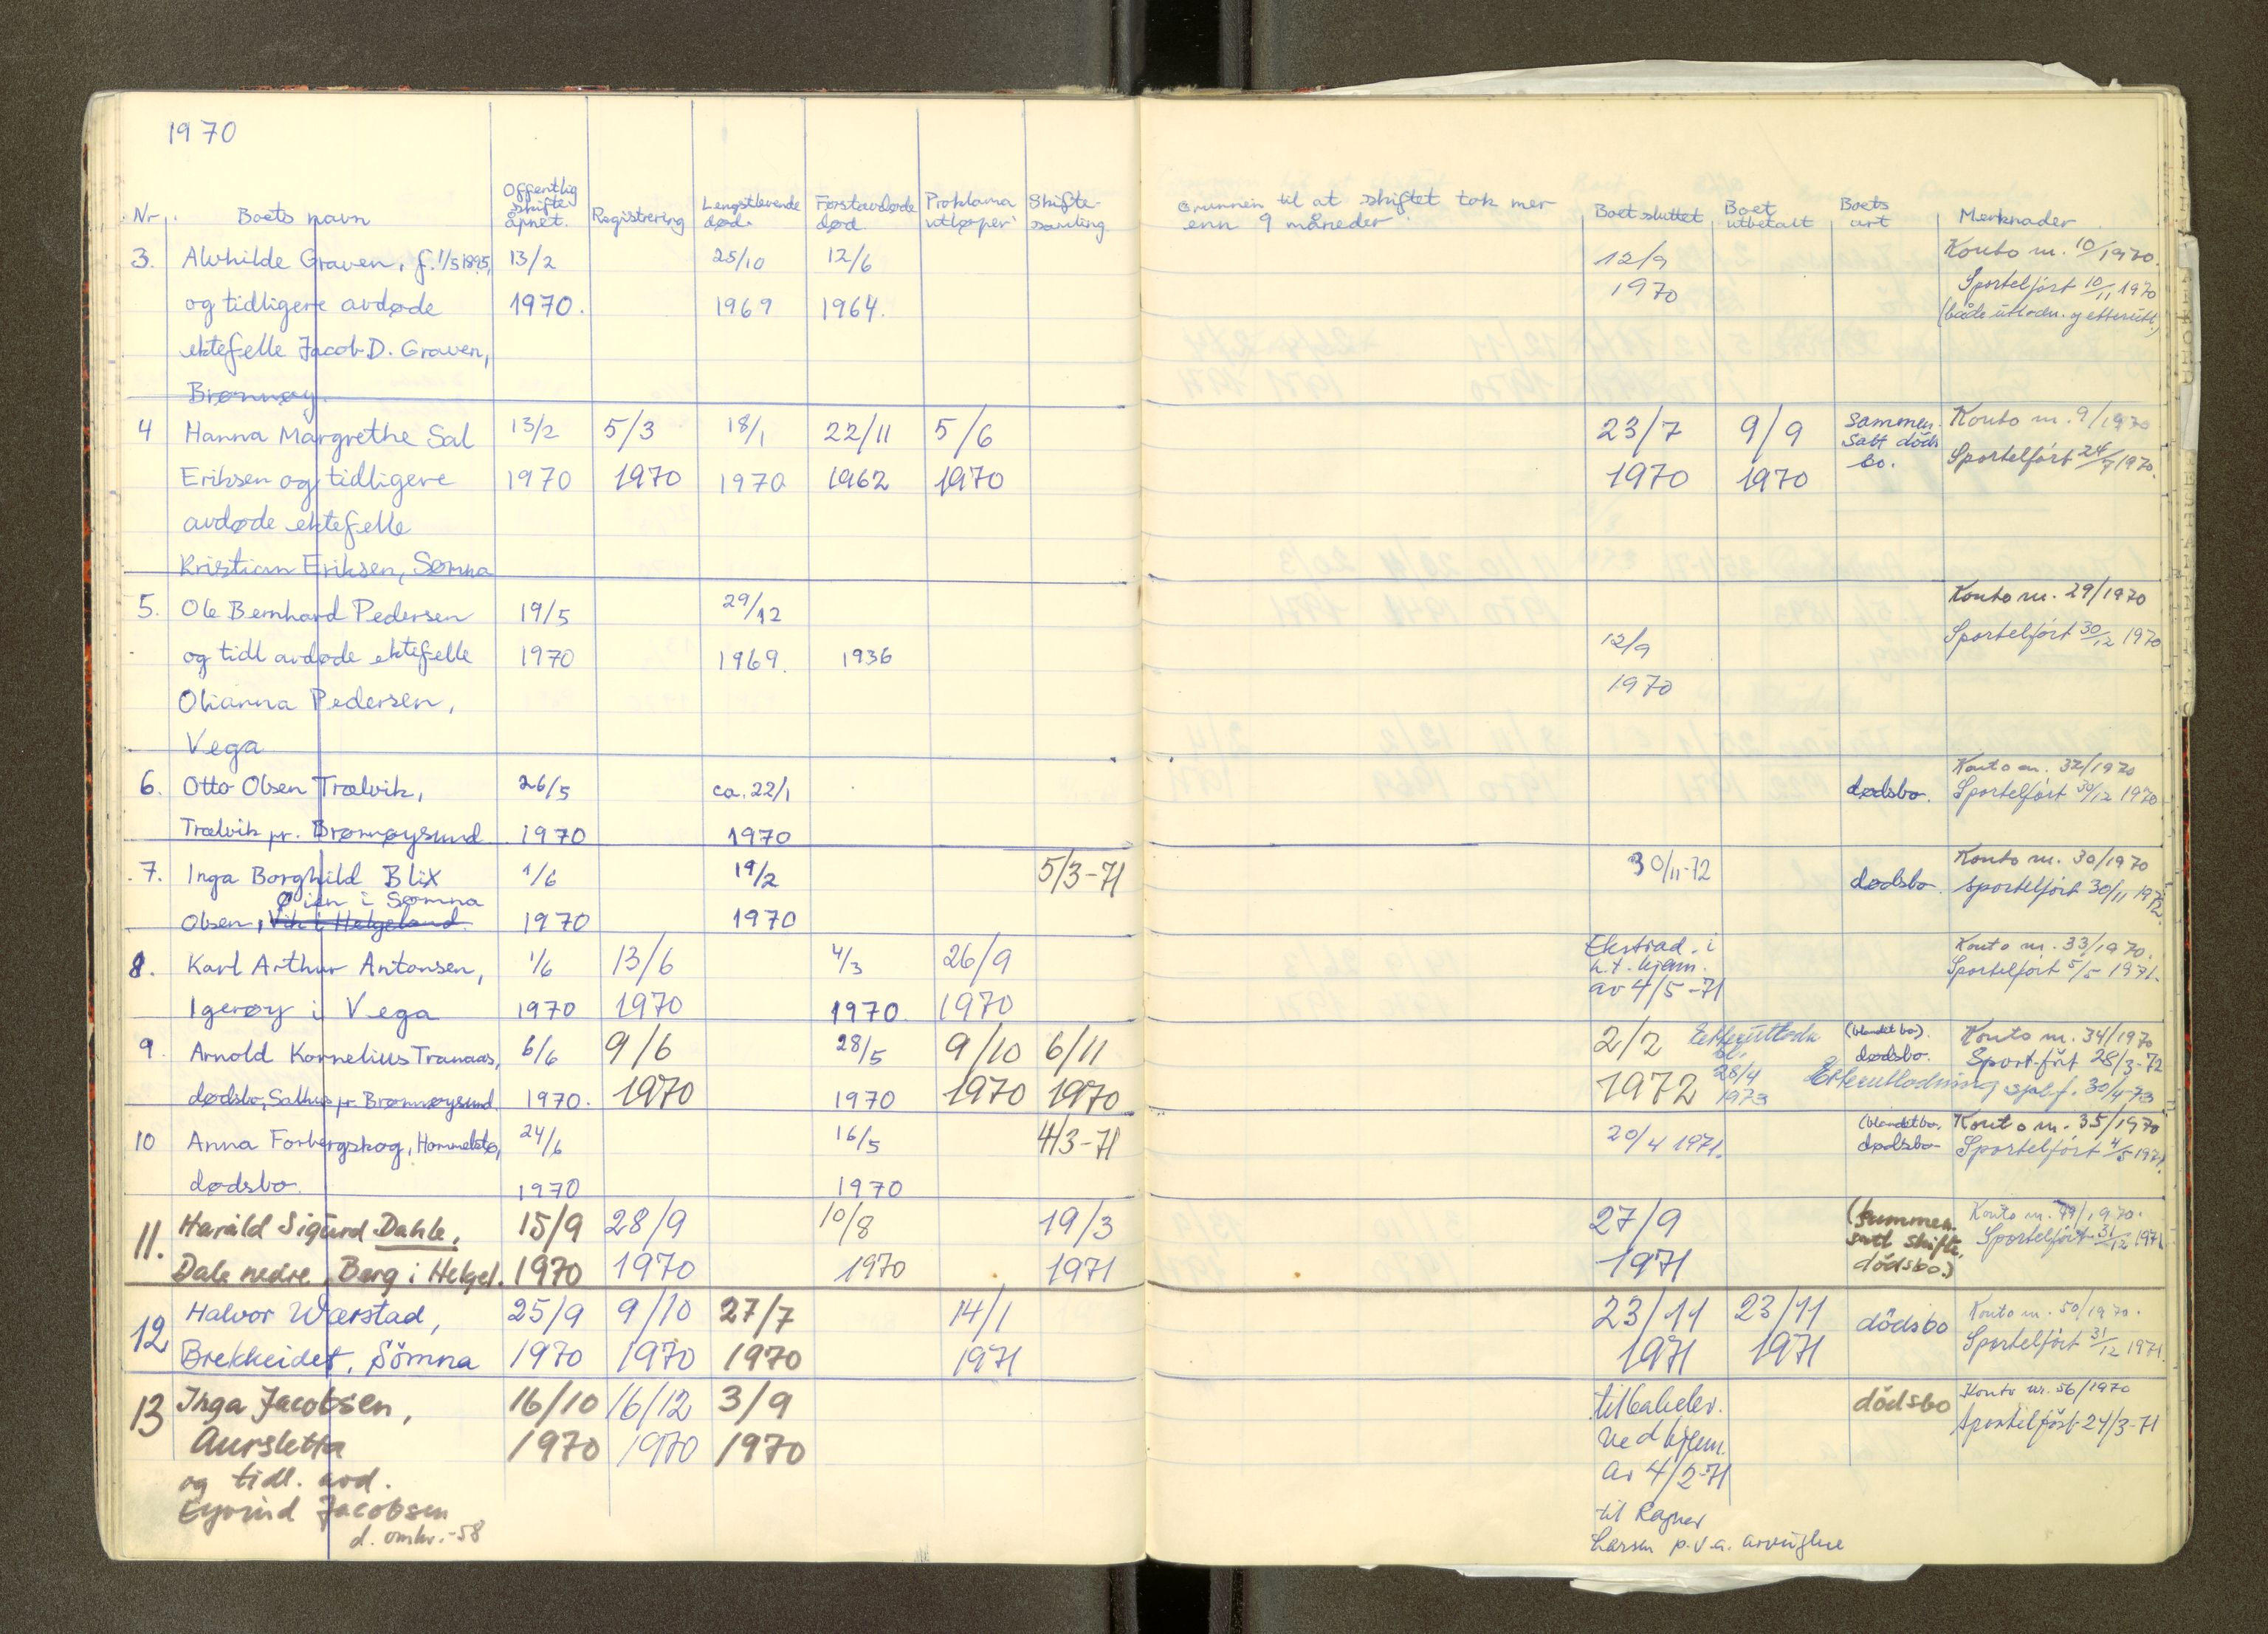 1970
Nr. Boets navn Offentlig skifte åpnet. Registrering Lengstlevende død. Førstavdøde død. Proklama utløper Skifte-samling Grunnen til at skiftet tok mer enn 9 måneder Boet sluttet Boet utbetalt Boets art Merknader
3. Alvhilde Graven, f. 1/5 1895, 13/2 25/10 12/6 12/9 Konto nr. 10/1970.
og tidligere avdøde 1970. 1969 1964. 1970 Sportelført 10/11 1970
ektefelle Jacob D. Graven, (både utlodn. og etterutl.)
Brønnøy.
4 Hanna Margrethe Sal 13/2 5/3 18/1 22/11 5/6 23/7 9/9 sammen- Konto nr. 9/1970
Eriksen og tidligere 1970 1970 1970 1962 1970 1970 1970 satt döds bo. Sportelført 24/7 1970.
avdøde ektefelle
Kristian Eriksen, Sømna
5. Ole Bernhard Pedersen 19/5 29/12 Konto nr. 29/1970
og tidl avdøde ektefelle 1970 1969. 1936 12/9 Sportelført 30/12 1970
Olianna Pedersen, 1970
Vega
6. Otto Olsen Trælvik, 26/5 ca. 22/1 dødsbo. Konto nr. 32/1970
Trælvik pr. Brønnøysund 1970 1970 Sportelført 30/12 1970
7. Inga Borghild Blix 1/6 19/2 5/3-71 30/11-72 dødsbo. Konto nr. 30/1970
Øien i Sømna sportelført 30/11 1972.
Olsen, Vik i Helgeland. 1970 1970
8. Karl Arthur Antonsen, 1/6 13/6 4/3 26/9 Ekstrad. i Konto nr. 33/1970.
h.t. kjenn. Sportelført 5/5 1971.
Igerøy i Vega 1970 1970 1970. 1970 av 4/5-71
9. Arnold Kornelius Tranaas, 6/6 9/6 28/5 9/10 6/11 2/2 (blandet bo). Konto nr. 34/1970
dødsbo. Sport.ført 28/3-72
dødsbo, Salhus pr. Brønnøysund. 1970. 1970 1970 1970 1970 1972 28/4 1973 Etterutlodning spl.f. 30/4-73
10 Anna Forbergskog, Hommelstø, 24/6 16/5 4/3-71 20/4 1971. (blandet bo. Konto nr. 35/1970
dødsbo. 1970 1970 dødsbo Sportelført 4/5 1971.
11. Harald Sigurd Dahle, 15/9 28/9 10/8 19/3 27/9 (sammen- Konto nr. 49/1970.
Dale nedre, Berg i Helgel. 1970 1970 1970 1971 1971 satt skifte, dödsbo.) Sportelført 31/12 1971
12 Halvor Wærstad, 25/9 9/10 27/7 14/1 23/11 23/11 dödsbo Konto nr. 50/1970.
Brekkeidet, Sömna 1970 1970 1970 1971 1971 1971 Sportelført 31/12 1971.
13 Inga Jacobsen, 16/10 16/12 3/9 tilbakelev. dödsbo Konto nr. 56/1970
Aursletta 1970 1970 1970 ved kjenn. Sportelført 24/3-71
og tidl. avd. av 4/2-71
Eyvind Jacobsen til Ragner
d. omkr. -58 Larsen p.v.a. arvingene